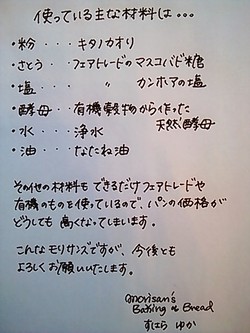 使っている主な材料は・・・
・粉・・・キタノカオリ
・さとう・・フェアトレードのマスコバド糖
・塩・・・ 〃 カンホアの塩
・酵母・・有機穀物から作った
天然酵母
・水・・・浄水
・油・・・なたね油
その他の材料もできるだけフェアトレードや
有機のものを使っているので、パンの価格が
どうしても高くなってしまいます。
こんなモリサンズですが、今後とも
よろしくお願いいたします。
morisan's
Baking of Bread
すはら ゆか